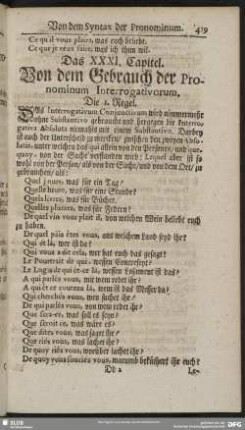 Von dem Syntax der Pronominum. 419
Ce qu'il vous plaira, was euch beliebt.
Ce que je veux faire, was ich thun wil.
Das XXXI. Capitel.
Von dem Gebrauch der Pro-
nominum Interrogativorum.
Die 1. Regel.
Das Interrogativum Conjunctivum wird nimmermehr
ohne Substantivo gebraucht und hergegen die Interro-
gativa Absoluta niemahls mit einem Substantivo. Darbey
ist auch der Unterscheid zu mercken zwischen den zweyen Abso-
lutis, unter welchen das qui allein von den Personen, und que,
quoy, von der Sache verstanden wird; Lequel aber ist so
wohl von der Person, als von der Sache, und von dem Ort, zu
gebrauchen, als:
Quel jour, was für ein Tag?
Quelle heure, was für eine Stunde?
Quels livres, was für Bücher.
Quelles plumes, was für Federn?
De quel vin vous plait il, von welchem Wein beliebt euch
zu haben.
De quel païs étes vous, aus welchem Land seyd ihr?
Qui est là, wer ist da?
Qui vous a dit cela, wer hat euch das gesagt?
Le Pourtrait de qui, wessen Contrefeyt?
Le Logis de qui est-ce là, wessen Losement ist das?
A qui parlés vous, mit wem redet ihr?
A qui est ce couteau là, wem ist das Messer da?
Qui cherchés vous, wen suchet ihr?
De qui parlés vous, von wem redet ihr?
Que sera-ce, was soll es seyn?
Que seroit ce, was wäre es?
Que dites vous, was saget ihr?
De quoy riés vous, worüber lachet ihr?
De quoy vous souciés vous, warumb bekümert ihr euch?
Dd 2 Le-
SLUB